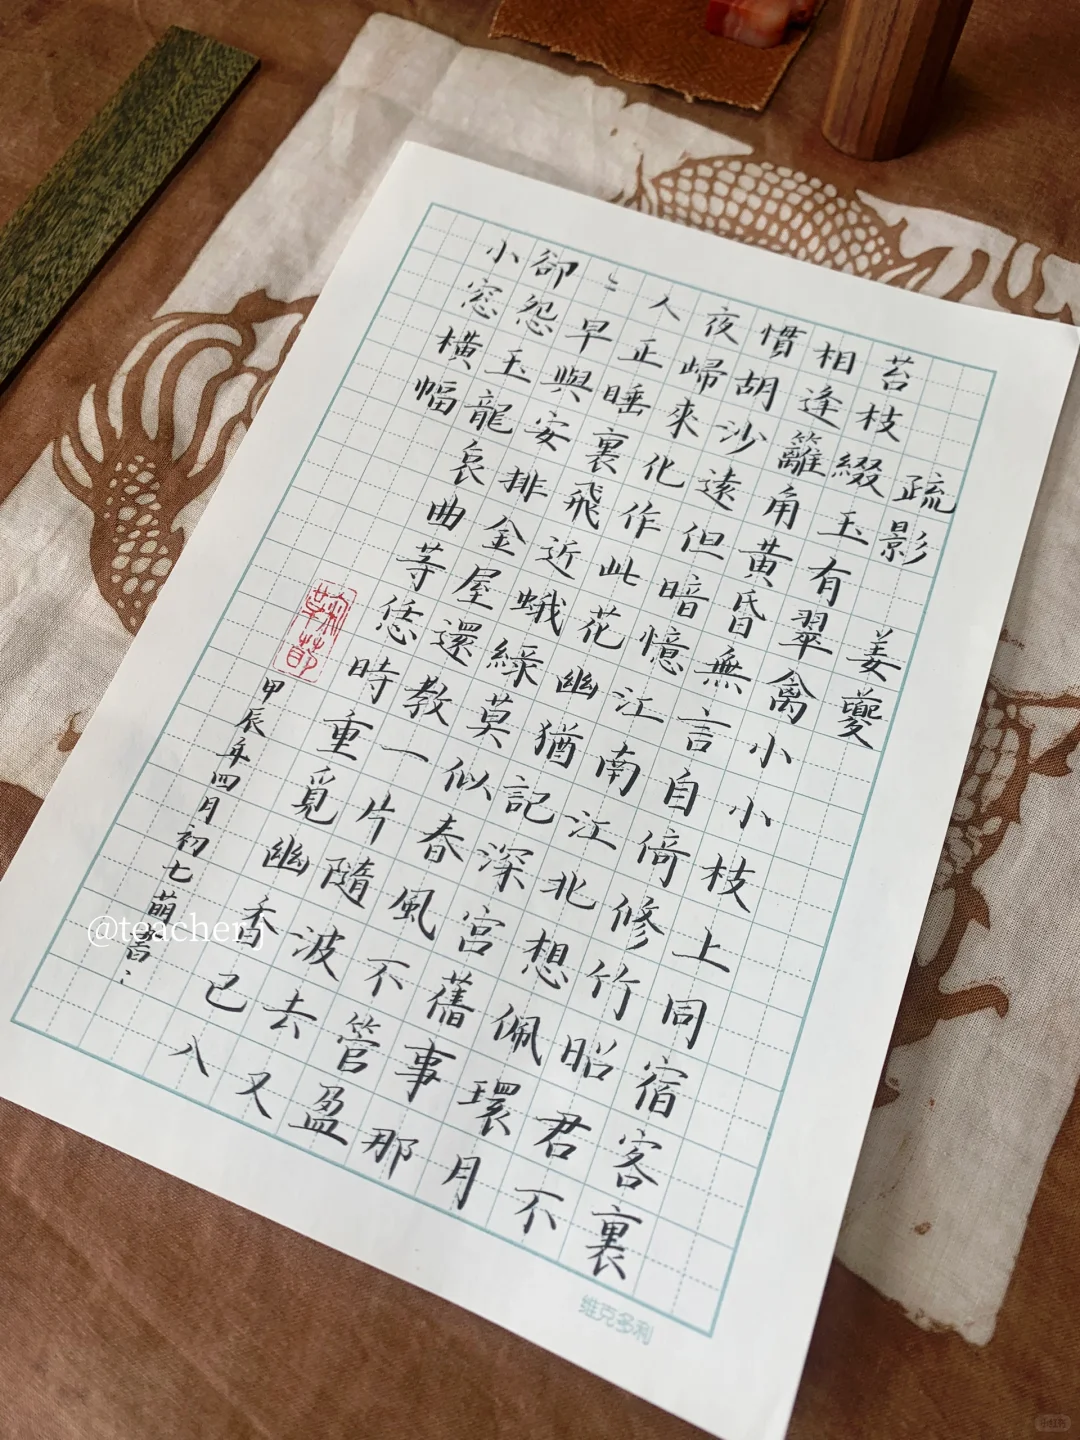 疏影 姜夔
苔枝綴玉有翠禽小小枝上同宿客裏
相逢籬角黃昏無言自倚修竹昭君不
慣胡沙遠但暗憶江南江北想佩環月
夜歸來化作此花幽猶記深宮舊事那
人正睡裏飛近蛾綠莫似春風不管盈
〻早與安排金屋還教一片隨波去又
卻怨玉龍哀曲等恁時重覓幽香已八
小窓橫幅
甲辰年四月初七萌書
@teacher j
维克多利